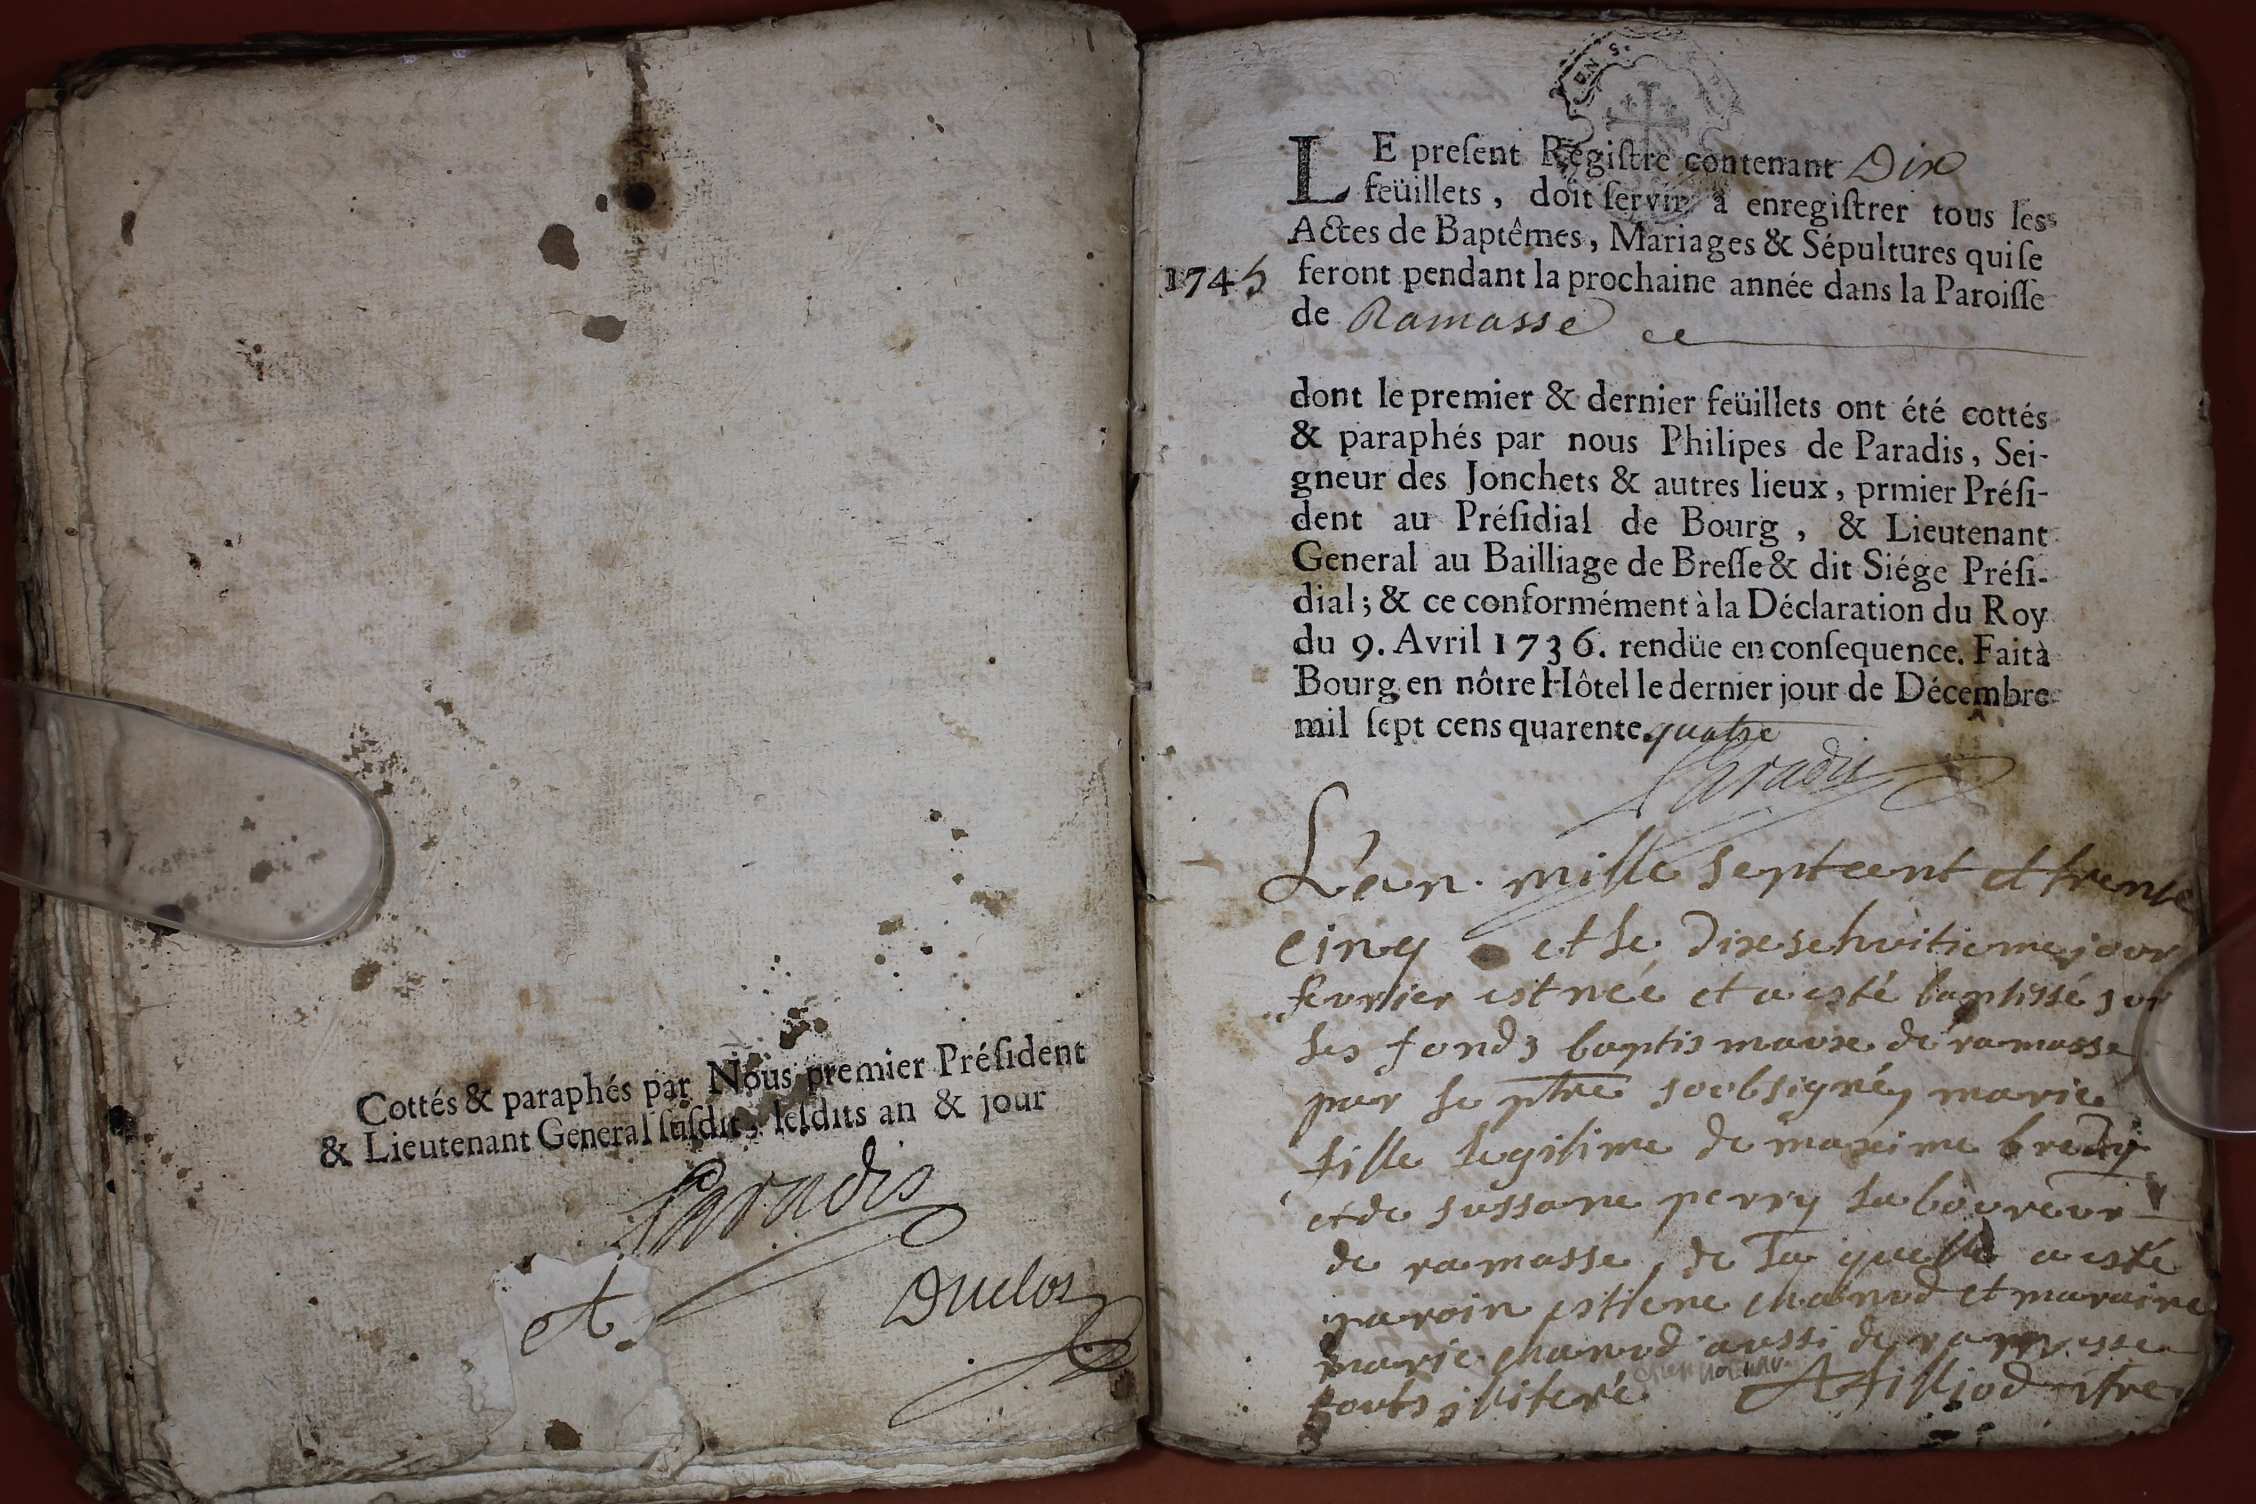 Cottés & paraphés par Nous premier Président
& Lieutenant General susdit, lesdits an & jour
Paradis
et
Duclos
LE present Registre contenant Dix
feüillets, doit servir à enregistrer tous les
Actes de Baptêmes, Mariages & Sépultures qui se
1745 feront pendant la prochaine année dans la Paroisse
de Ramasse
dont le premier & dernier feüillets ont été cottés
& paraphés par nous Philipes de Paradis, Sei-
gneur des Jonchets & autres lieux, prmier Prési-
dent au Présidial de Bourg, & Lieutenant
General au Bailliage de Bresse & dit Siége Prési-
dial; & ce conformément à la Déclaration du Roy
du 9. Avril 1736. rendüe en consequence. Fait à
Bourg en nôtre Hôtel le dernier jour de Décembre
mil sept cens quarente quatre
Paradis
L'an mille septcent et trente
cinq et le dixsehuitieme jour
fevrier est née et a esté baptissé sur
les fonds baptis maux de ramasse
par le ptre soubsigné, marie
fille legitime de maxime
et de sussane perry laboureur
de ramasse, de la quelle a esté
paroin estiene chanod et maraine
marie chanod aussi de ramasse
touts illiteré